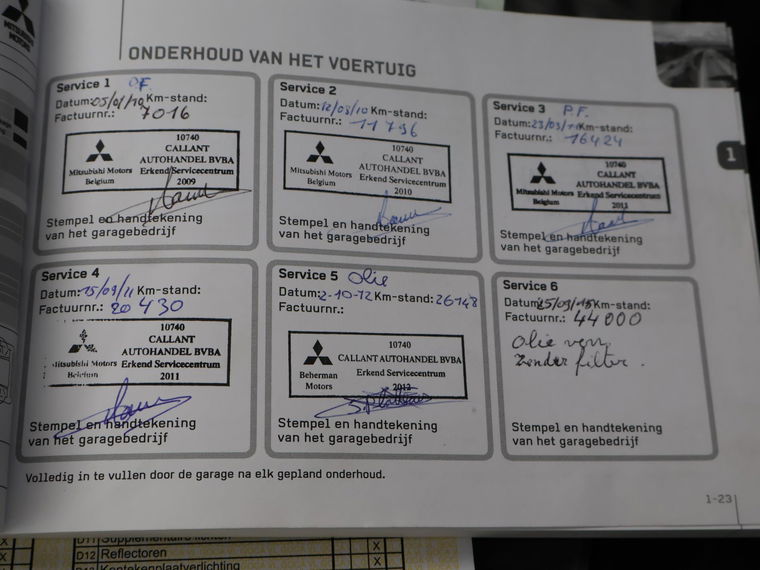 MITSUBISHI
MOTORS
ONDERHOUD VAN HET VOERTUIG
Service 1 O.F.
Datum: Km-stand:
Factuurnr.: 7016
10740
CALLANT
AUTOHANDEL BVBA
Mitsubishi Motors Erkend Servicecentrum
Belgium 2009
Stempel en handtekening
van het garagebedrijf
Service 2
Datum: 12/03/10 Km-stand:
Factuurnr.: 11796
10740
CALLANT
AUTOHANDEL BVBA
Mitsubishi Motors Erkend Servicecentrum
Belgium 2010
Stempel en handtekening
van het garagebedrijf
Service 3 P.F.
Datum: 23/03/11 Km-stand:
Factuurnr.: 16424
10740
CALLANT
AUTOHANDEL BVBA
Mitsubishi Motors Erkend Servicecentrum
Belgium 2011
Stempel en handtekening
van het garagebedrijf
1
Service 4
Datum: 15/09/11 Km-stand:
Factuurnr.: 20430
10740
CALLANT
AUTOHANDEL BVBA
Mitsubishi Motors Erkend Servicecentrum
Belgium 2011
Stempel en handtekening
van het garagebedrijf
Service 5 Olie
Datum: 2-10-12 Km-stand: 26148
Factuurnr.:
10740
CALLANT AUTOHANDEL BVBA
Beherman Erkend Servicecentrum
Motors 2012
Stempel en handtekening
van het garagebedrijf
Service 6
Datum: 25/09/15 Km-stand:
Factuurnr.: 44000
olie verv.
zonder filter.
Stempel en handtekening
van het garagebedrijf
Volledig in te vullen door de garage na elk gepland onderhoud.
1-23
D11 Supplementaire lichten
D12 Reflectoren X
Kentekenplaatverlichting X